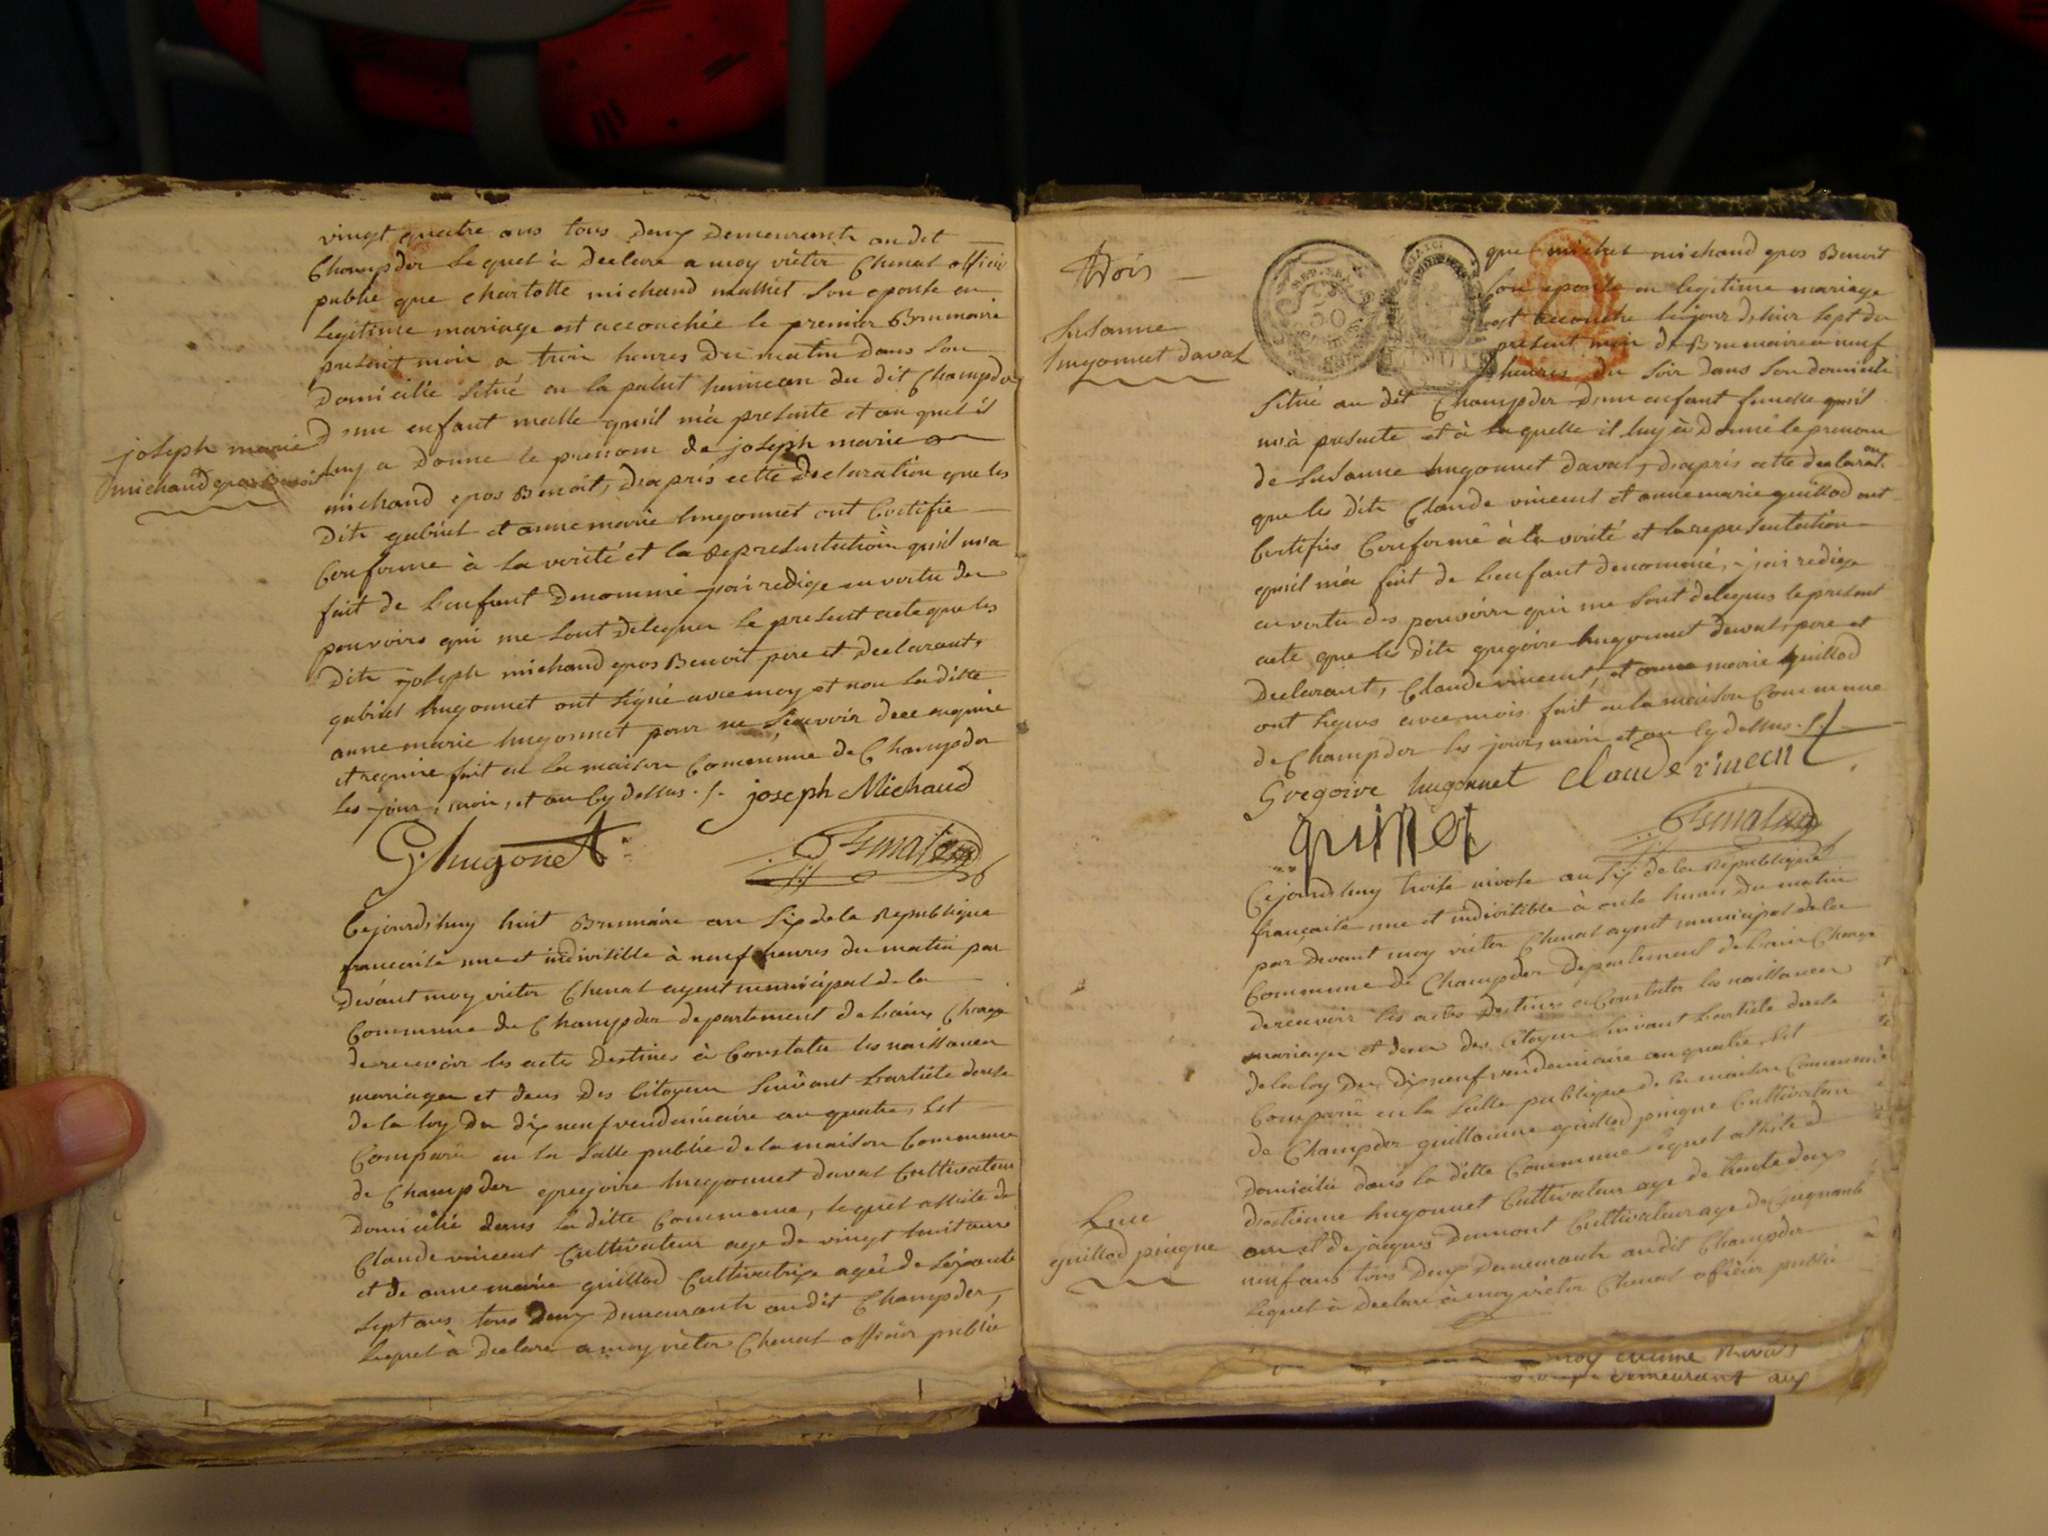 vingt quatre ans tous deux demeurants au dit
Champdor lequel à declaré a moy victor Chenal officier
public que charlotte michaud maillet son epouse en
legitime mariage est accouchée le premier Brumaire
present mois a trois heures du matin dans son
domicille situé en la palut hameau du dit Champdor
joseph marie
michaud gros Benoit
d'un enfant malle qu'il m'a presenté et au quel il
luy a donné le prenom de joseph marie
michaud gros Benoit, d'après cette declaration que les
dits gabriel et anne marie hugonnet ont Certifié
Conforme à la verité et la representation qu'il m'a
fait de l'enfant denommé j'ai redigé en vertu des
pouvoirs qui me sont delegués le present acte que les
dits joseph michaud gros Benoit pere et declarant,
gabriel hugonnet ont signé avec moy et non la ditte
anne marie hugonnet pour ne sçavoir de ce enquise
et requise fait en la maison Commune de Champdor
les jour, mois, et an cy dessus ./. joseph Michaud
G. hugonet
Cejourd'huy huit Brumaire an six de la Republique
francaise une et indivisible à neuf heures du matin par
devant moy victor Chenal agent municipal de la
Commune de Champdor departement de l'ain, Chargé
de recevoir les actes destinés à Constater les naissances
mariages et deces des Citoyens suivant l'article
de la loy du dix neuf vendemiaire an quatre, est
Comparu en la salle public de la maison Commune
de Champdor gregoire hugonnet daval Cultivateur
domicilié dans la ditte Commune, lequel assisté de
Claude vincent Cultivateur agé de vingt huit ans
et de anne marie guillod Cultivatrix agée de soixante
sept ans tous deux demeurants audit Champdor,
lequel à declaré a moy victor Chenal officier public
trois
Susanne
hugonnet daval
50
que michel michaud gros Benoit
son epouse en legitime mariage
est accouchée le jour d'hier sept du
present mois de Brumaire a neuf
heures du soir dans son domicile
situé au dit Champdor d'un enfant femelle qu'il
m'à presenté et à laquelle il luy à donné le prenom
de Susanne hugonnet daval, d'après cette declaration
que les dits Claude vincent et anne marie guillod ont
Certifiés Conforme à la verité et la representation
qu'il m'a fait de l'enfant denommé, j'ai redigé
en vertu des pouvoirs qui me sont delegués le present
acte que les dits gregoire hugonnet daval, pere et
declarant, Claude vincent, et anne marie guillod
ont signés avec mois fait en la maison Commune
de Champdor les jour, mois et an cy dessus ./.
Gregoire hugonnet Claude vincent
guillot
Cejourd'huy nivose an six de la Republique
française une et indivisible à onze heures du matin
par devant moy victor Chenal agent municipal de la
Commune de Champdor departement de l'ain Chargé
de recevoir les actes destinés a Constater les naissances
mariages et deces des Citoyens suivant l'article
de la loy du dix neuf vendemiaire an quatre, est
Comparu en la salle publique de la maison Commune
de Champdor guillaume guillod pingue Cultivateur
domicilié dans la ditte Commune lequel assisté
d'estienne hugonnet Cultivateur agé de trente deux
ans et de jacques dumont Cultivateur agé de Cinquante
Luce
guillod pingue
neuf ans tous deux demeurants audit Champdor
lequel à declaré à moy victor Chenal officier public
demeurant aux